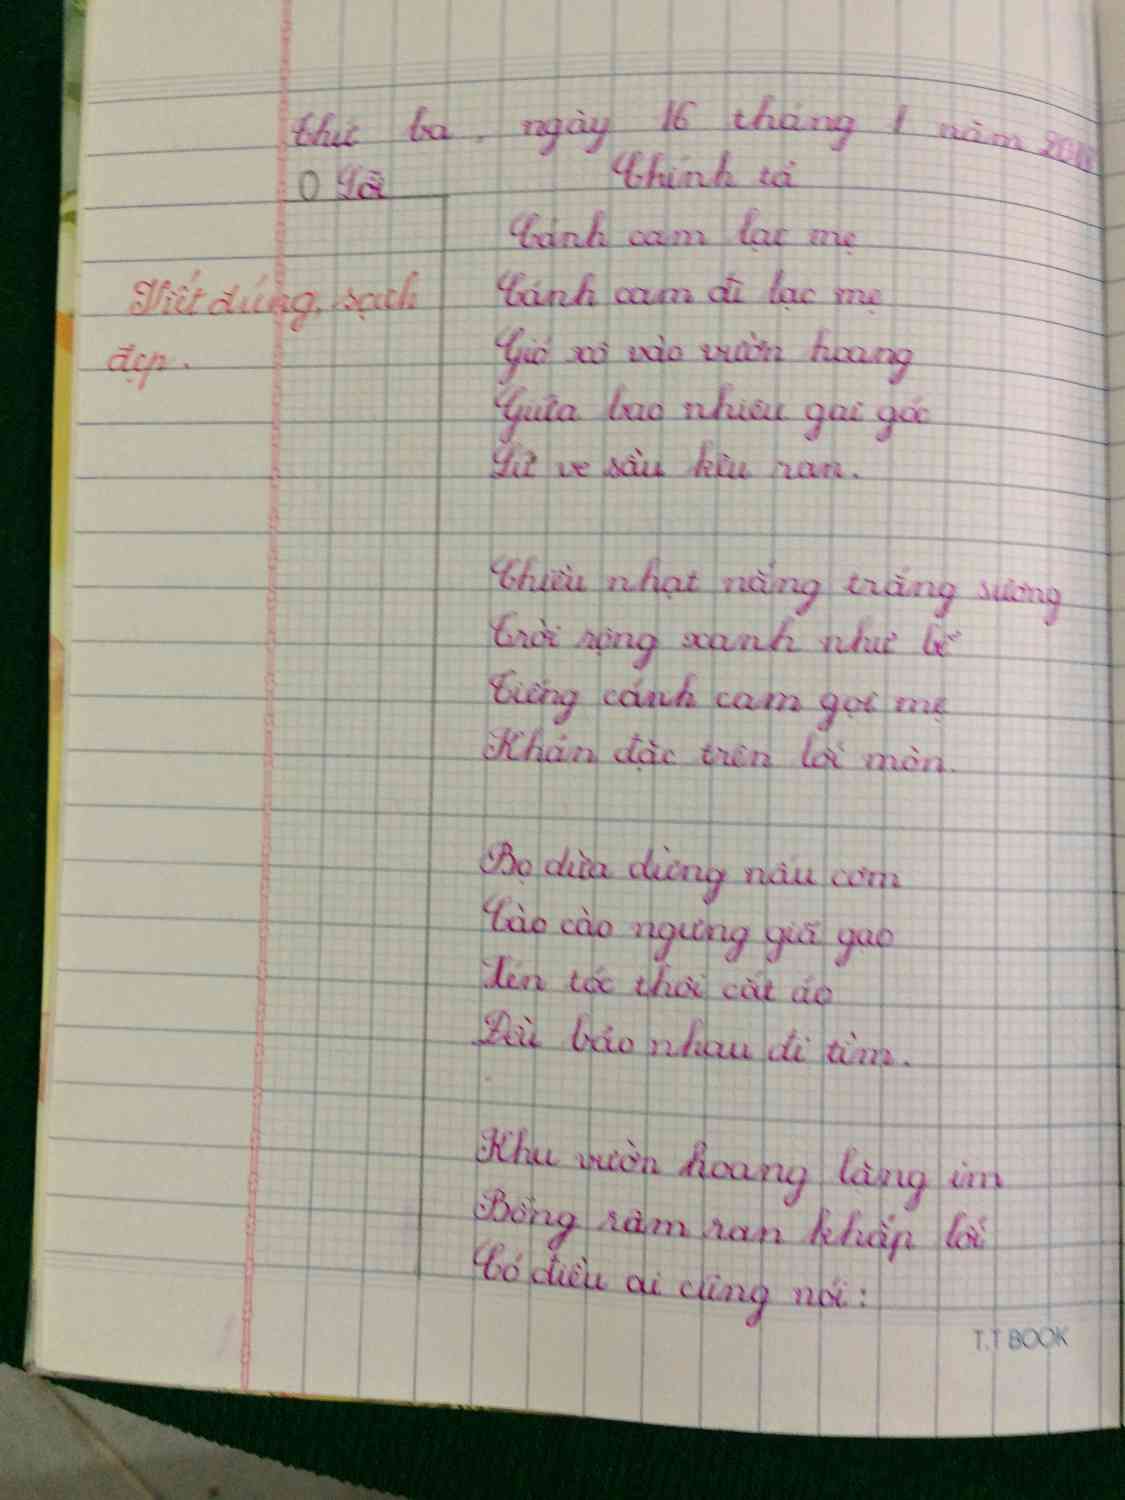 Thứ ba, ngày 16 tháng 1 năm 2018
0 lỗi Chính tả
Cánh cam lạc mẹ
Viết đúng, sạch
đẹp.
Cánh cam đi lạc mẹ
Gió xô vào vườn hoang
Giữa bao nhiêu gai góc
Lũ ve sầu kêu ran.
Chiều nhạt nắng trắng sương
Trời rộng xanh như bể
Tiếng cánh cam gọi mẹ
Khản đặc trên lối mòn.
Bọ dừa dừng nấu cơm
Cào cào ngưng giã gạo
Xén tóc thôi cắt áo
Đều bảo nhau đi tìm.
Khu vườn hoang lặng im
Bỗng râm ran khắp lối
Có điều ai cũng nói:
T.T BOOK